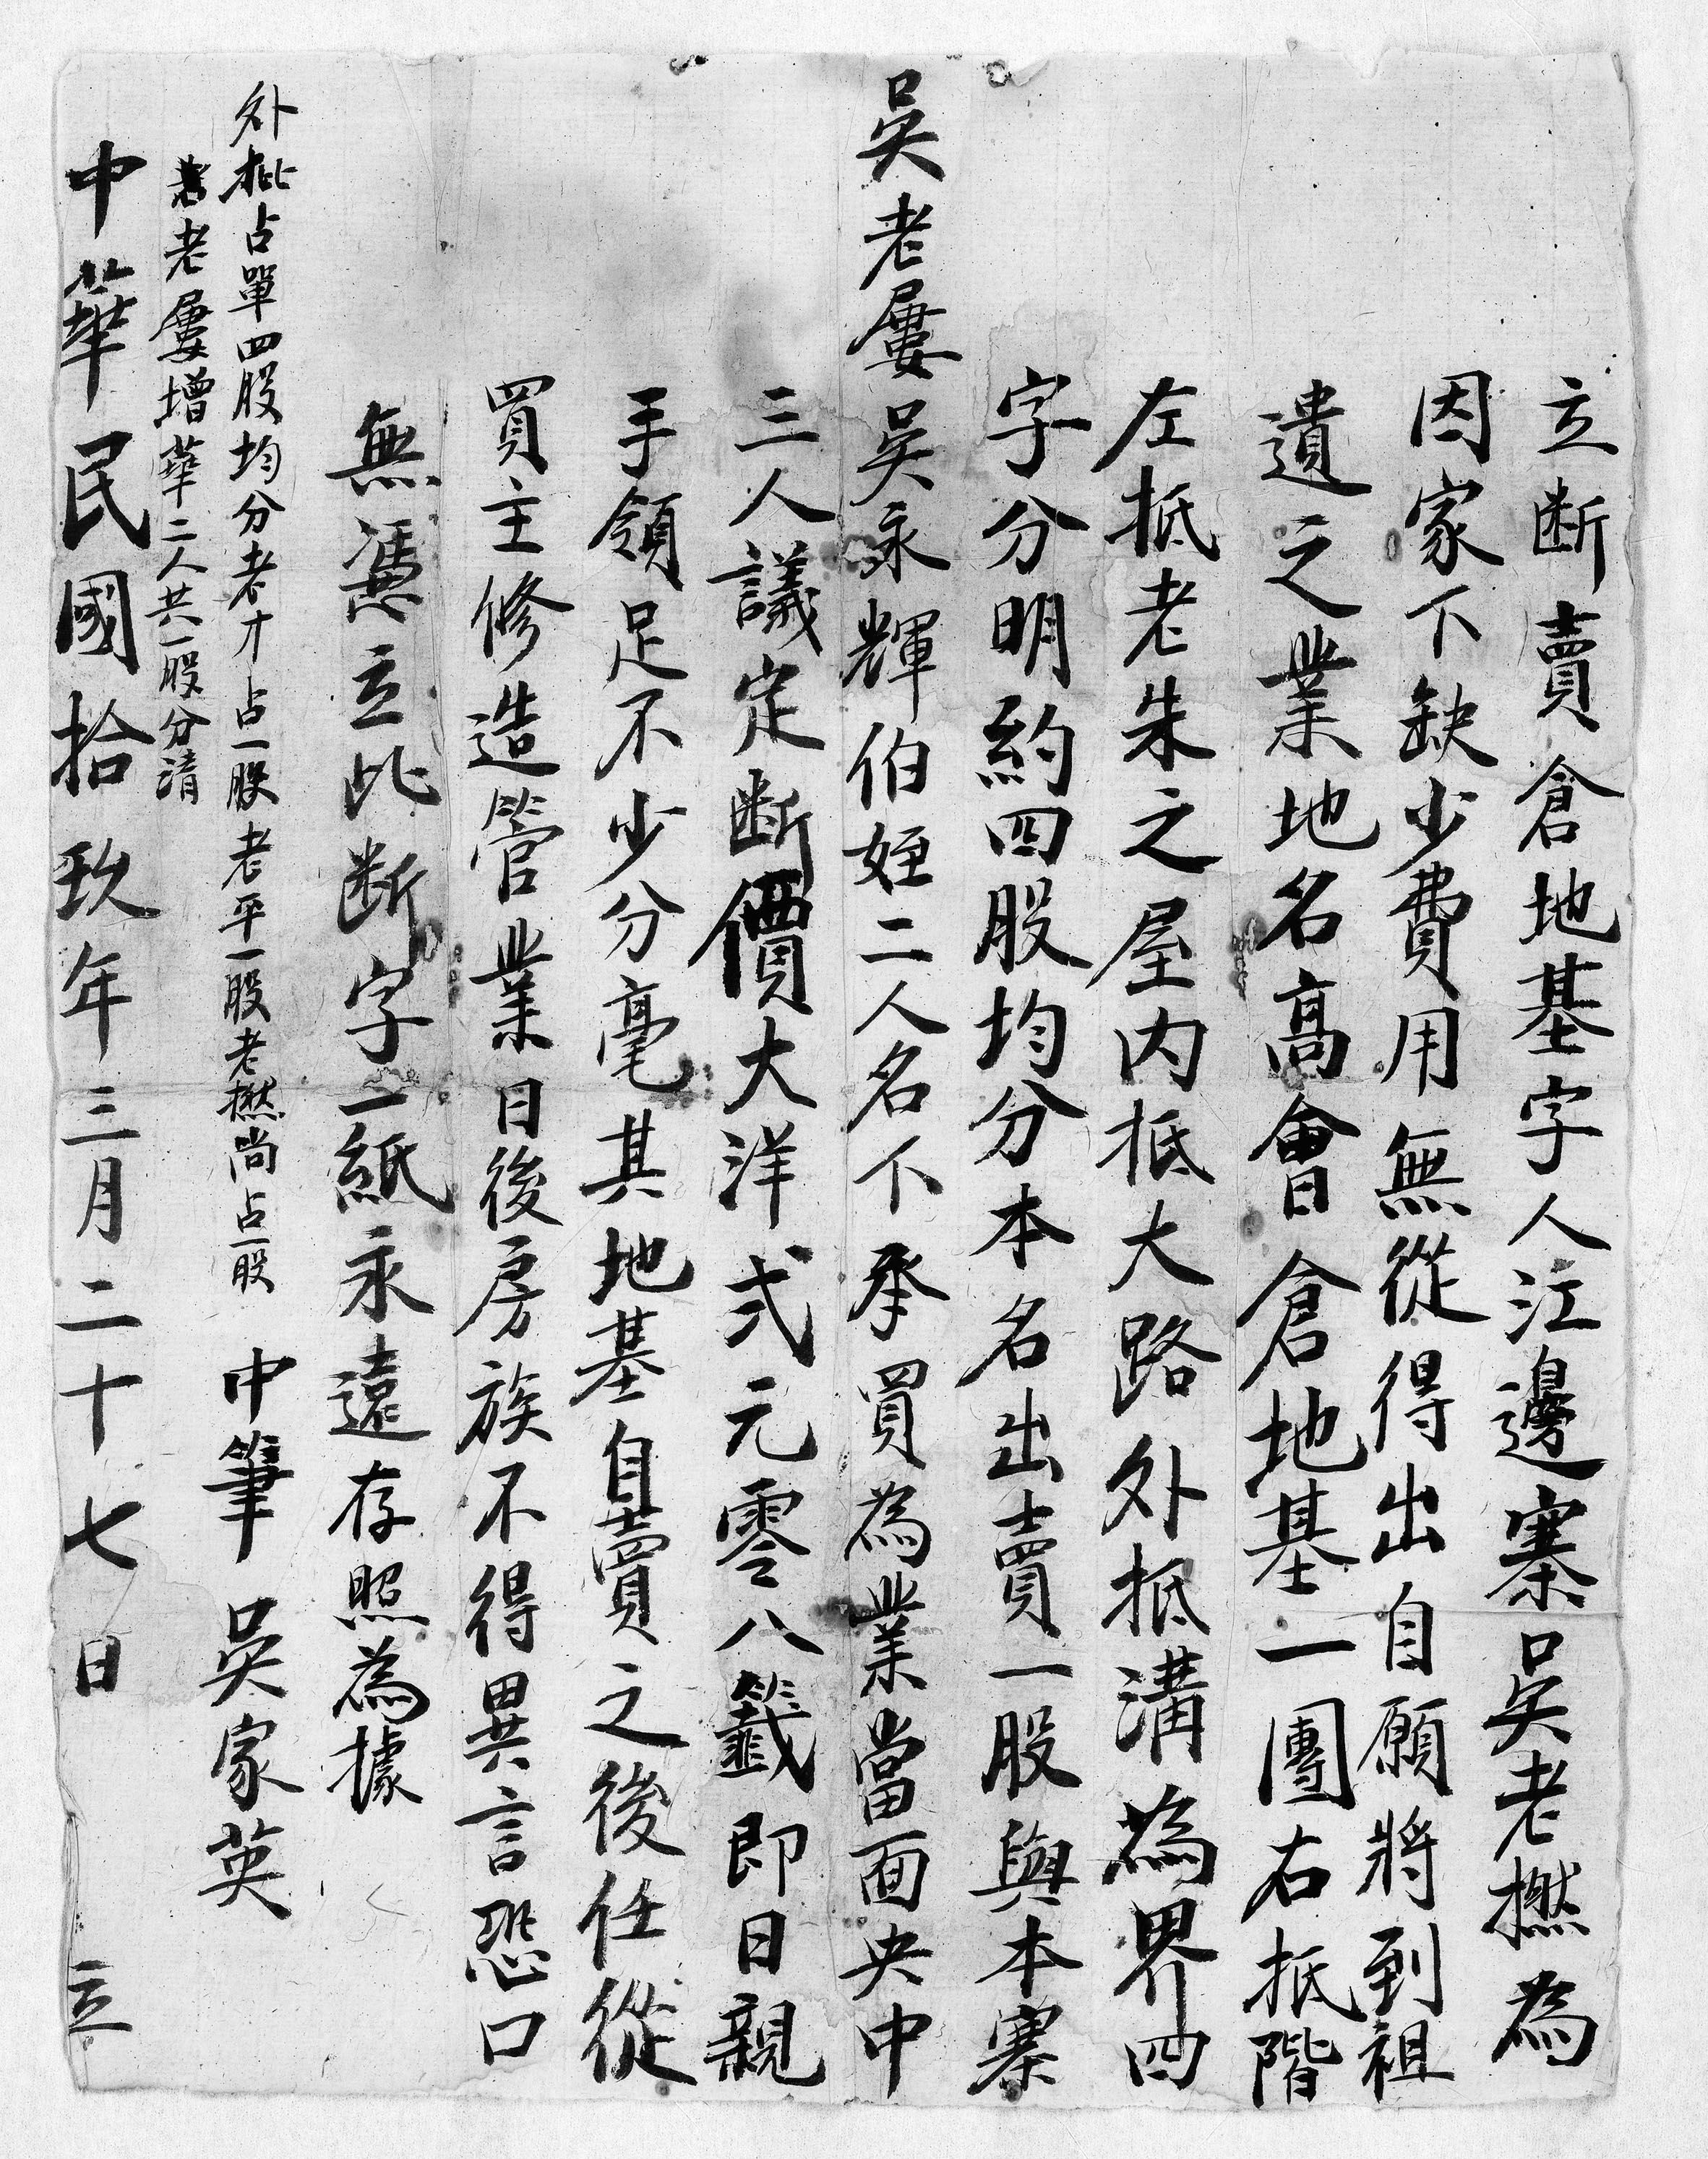 立断賣倉地基字人江邊寨吳老撚為
因家下缺少費用無從得出自願將到祖
遺之業地名高會倉地基一團右抵階
左抵老朱之屋内抵大路外抵溝為界四
字分明約四股均分本名出賣一股與本寨
吳老屢吳永輝伯姪二人名下承買為業當面央中
三人議定断價大洋弍元零八籤即日親
手領足不少分毫其地基自賣之後任從
買主修造管業日後房族不得異言恐口
無憑立此断字一紙永遠存照為據
外批占單四股均分老才占一股老平一股老撚尚占一股
老屢增華二人共一股分清
中筆 吳家英
中華民國拾玖年三月二十七日 立